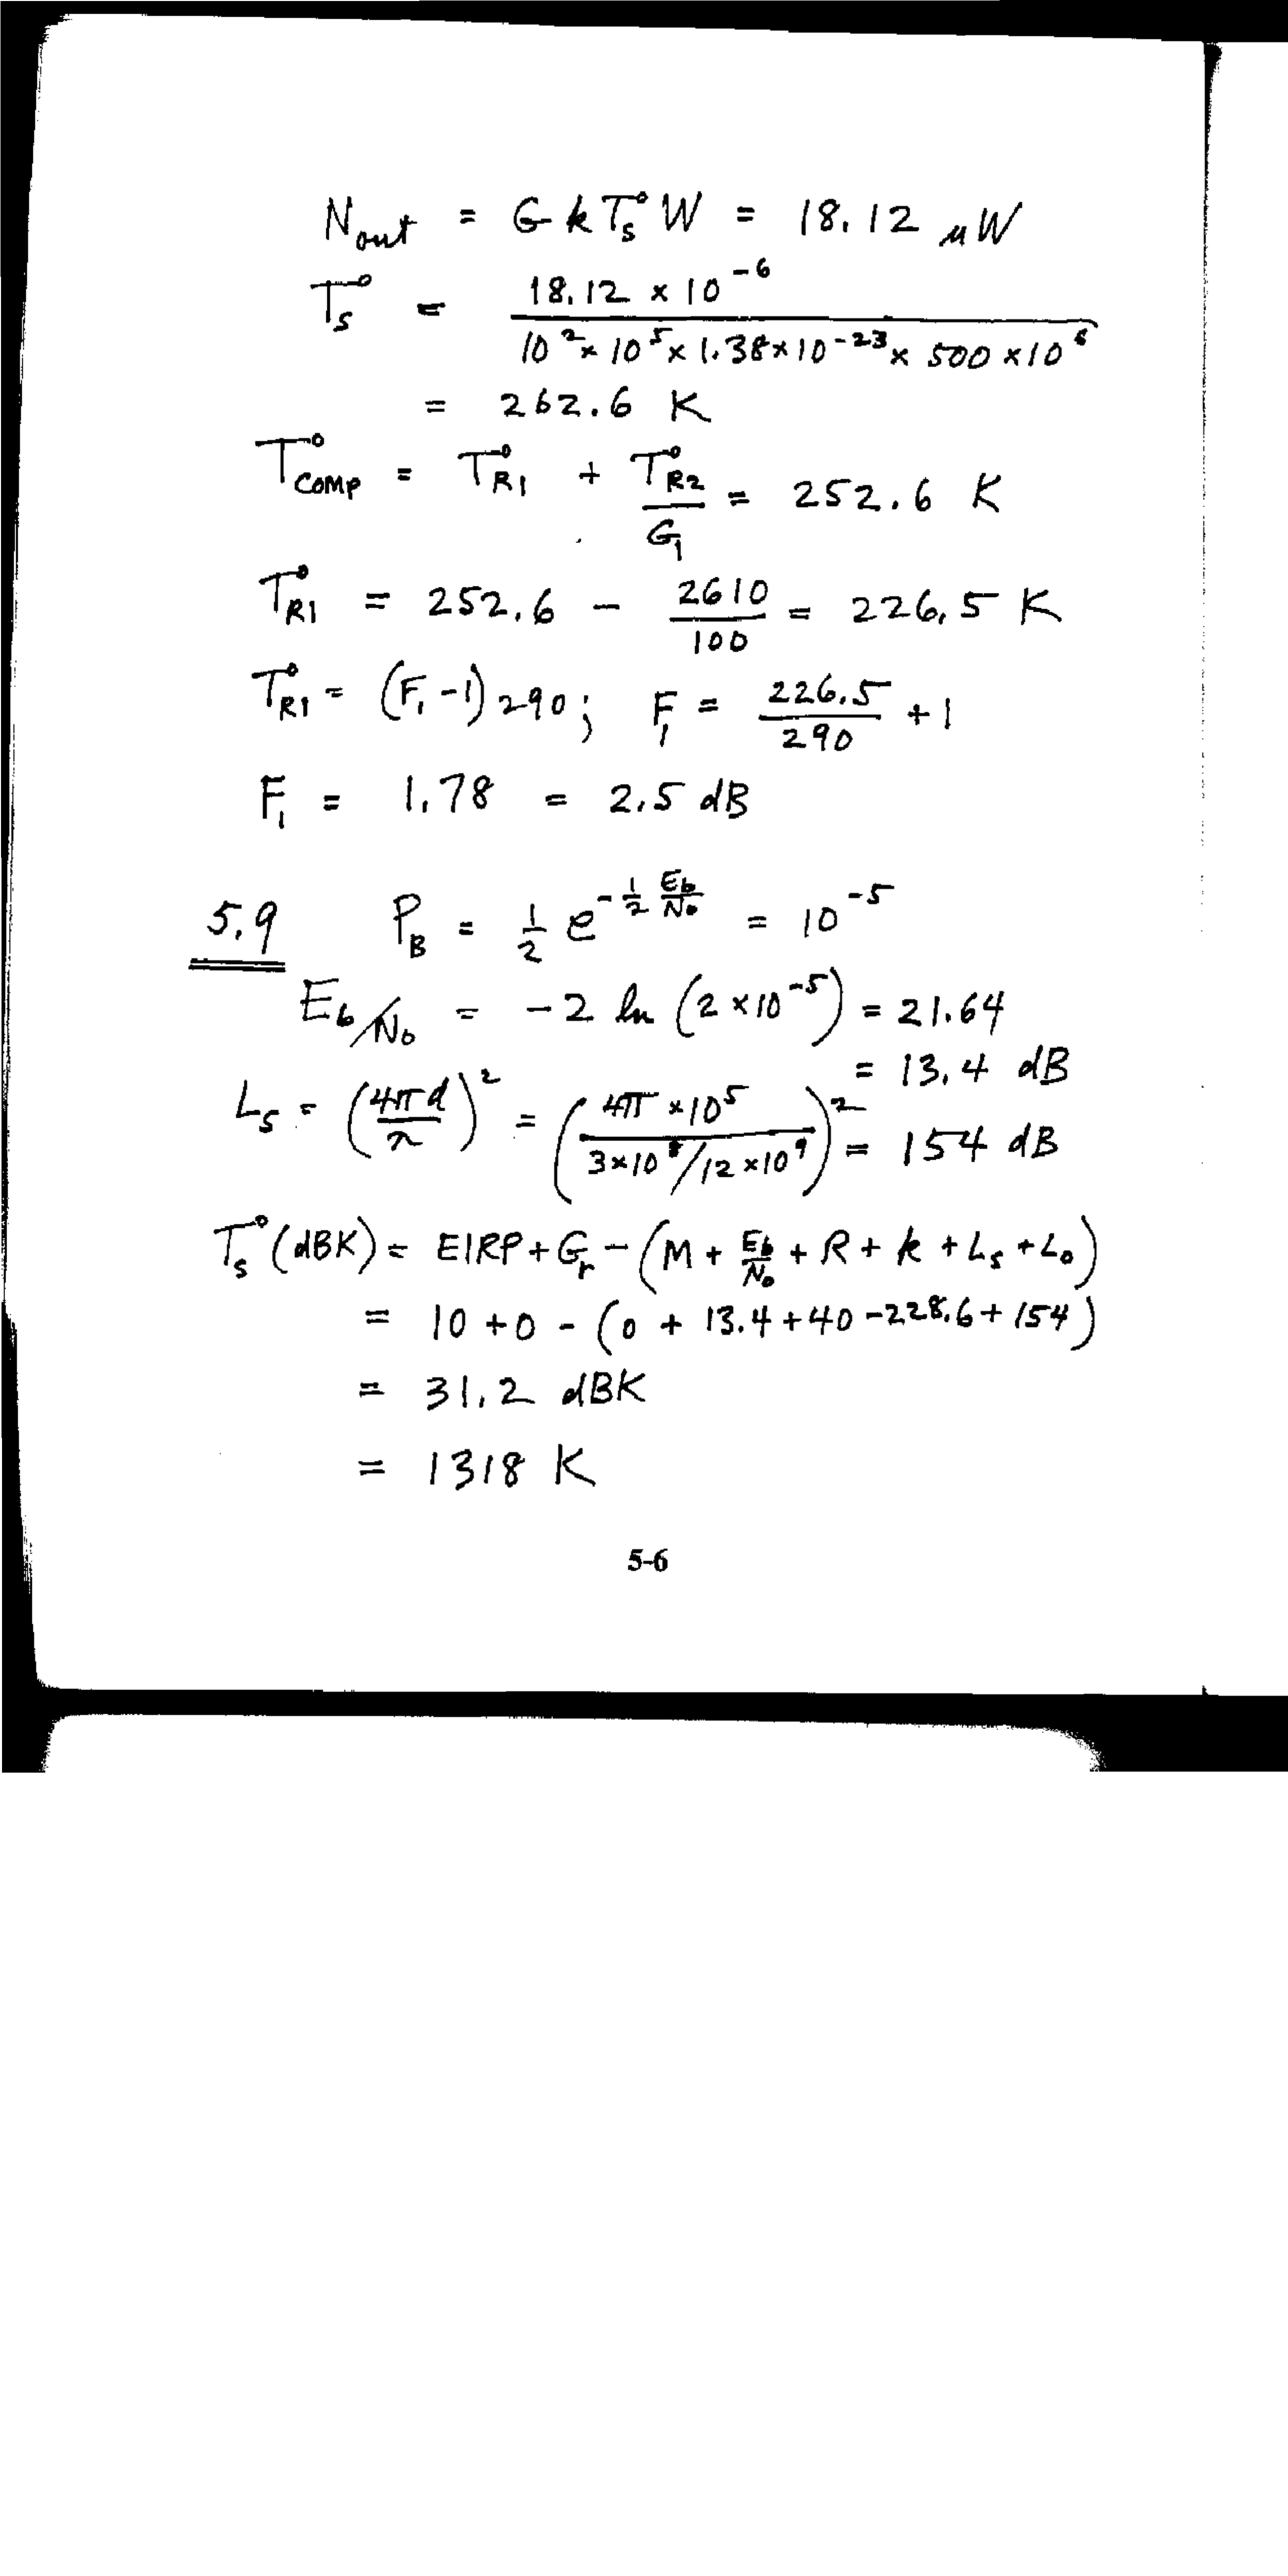 N_out = G k T_s° W = 18.12 μW
T_s° = 18.12 × 10^-6 / 10^2 × 10^5 × 1.38 × 10^-23 × 500 × 10^6
= 262.6 K
T°_COMP = T°_R1 + T°_R2 / G_1 = 252.6 K
T°_R1 = 252.6 - 2610 / 100 = 226.5 K
T°_R1 = (F_1 - 1) 290; F_1 = 226.5 / 290 + 1
F_1 = 1.78 = 2.5 dB
5.9 P_B = 1/2 e^(-1/2 Eb/No) = 10^-5
E_b/N_0 = -2 ln (2 × 10^-5) = 21.64
= 13.4 dB
L_s = (4πd / λ)^2 = (4π × 10^5 / 3×10^8/12×10^9)^2 = 154 dB
T_s° (dBK) = EIRP + G_r - (M + Eb/No + R + k + L_s + L_o)
= 10 + 0 - (0 + 13.4 + 40 - 228.6 + 154)
= 31.2 dBK
= 1318 K
5-6